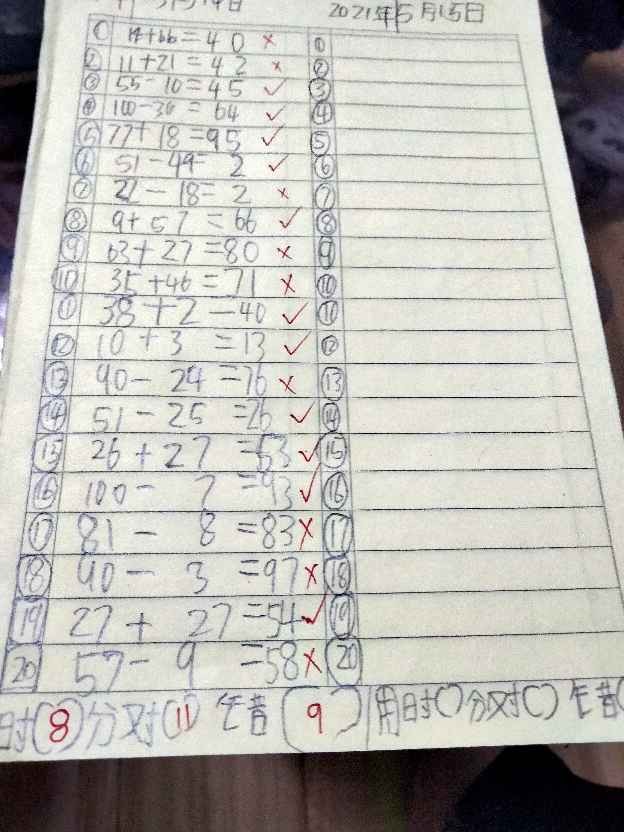 5月14日 2021年5月15日
① 14+66=40 × ①
② 11+21=42 × ②
③ 55-10=45 ✓ ③
④ 100-36=64 ✓ ④
⑤ 77+18=95 ✓ ⑤
⑥ 51-49=2 ✓ ⑥
⑦ 21-18=2 × ⑦
⑧ 9+57=66 ✓ ⑧
⑨ 63+27=80 × ⑨
⑩ 35+46=71 × ⑩
⑪ 38+2-40 ✓ ⑪
⑫ 10+3=13 ✓ ⑫
⑬ 90-24=76 × ⑬
⑭ 51-25=26 ✓ ⑭
⑮ 26+27=53 ✓ ⑮
⑯ 100-7=93 ✓ ⑯
⑰ 81-8=83 × ⑰
⑱ 90-3=97 × ⑱
⑲ 27+27=54 ✓ ⑲
⑳ 57-9=58 × ⑳
时(8)分对(11)错(9) 用时()分对()错(